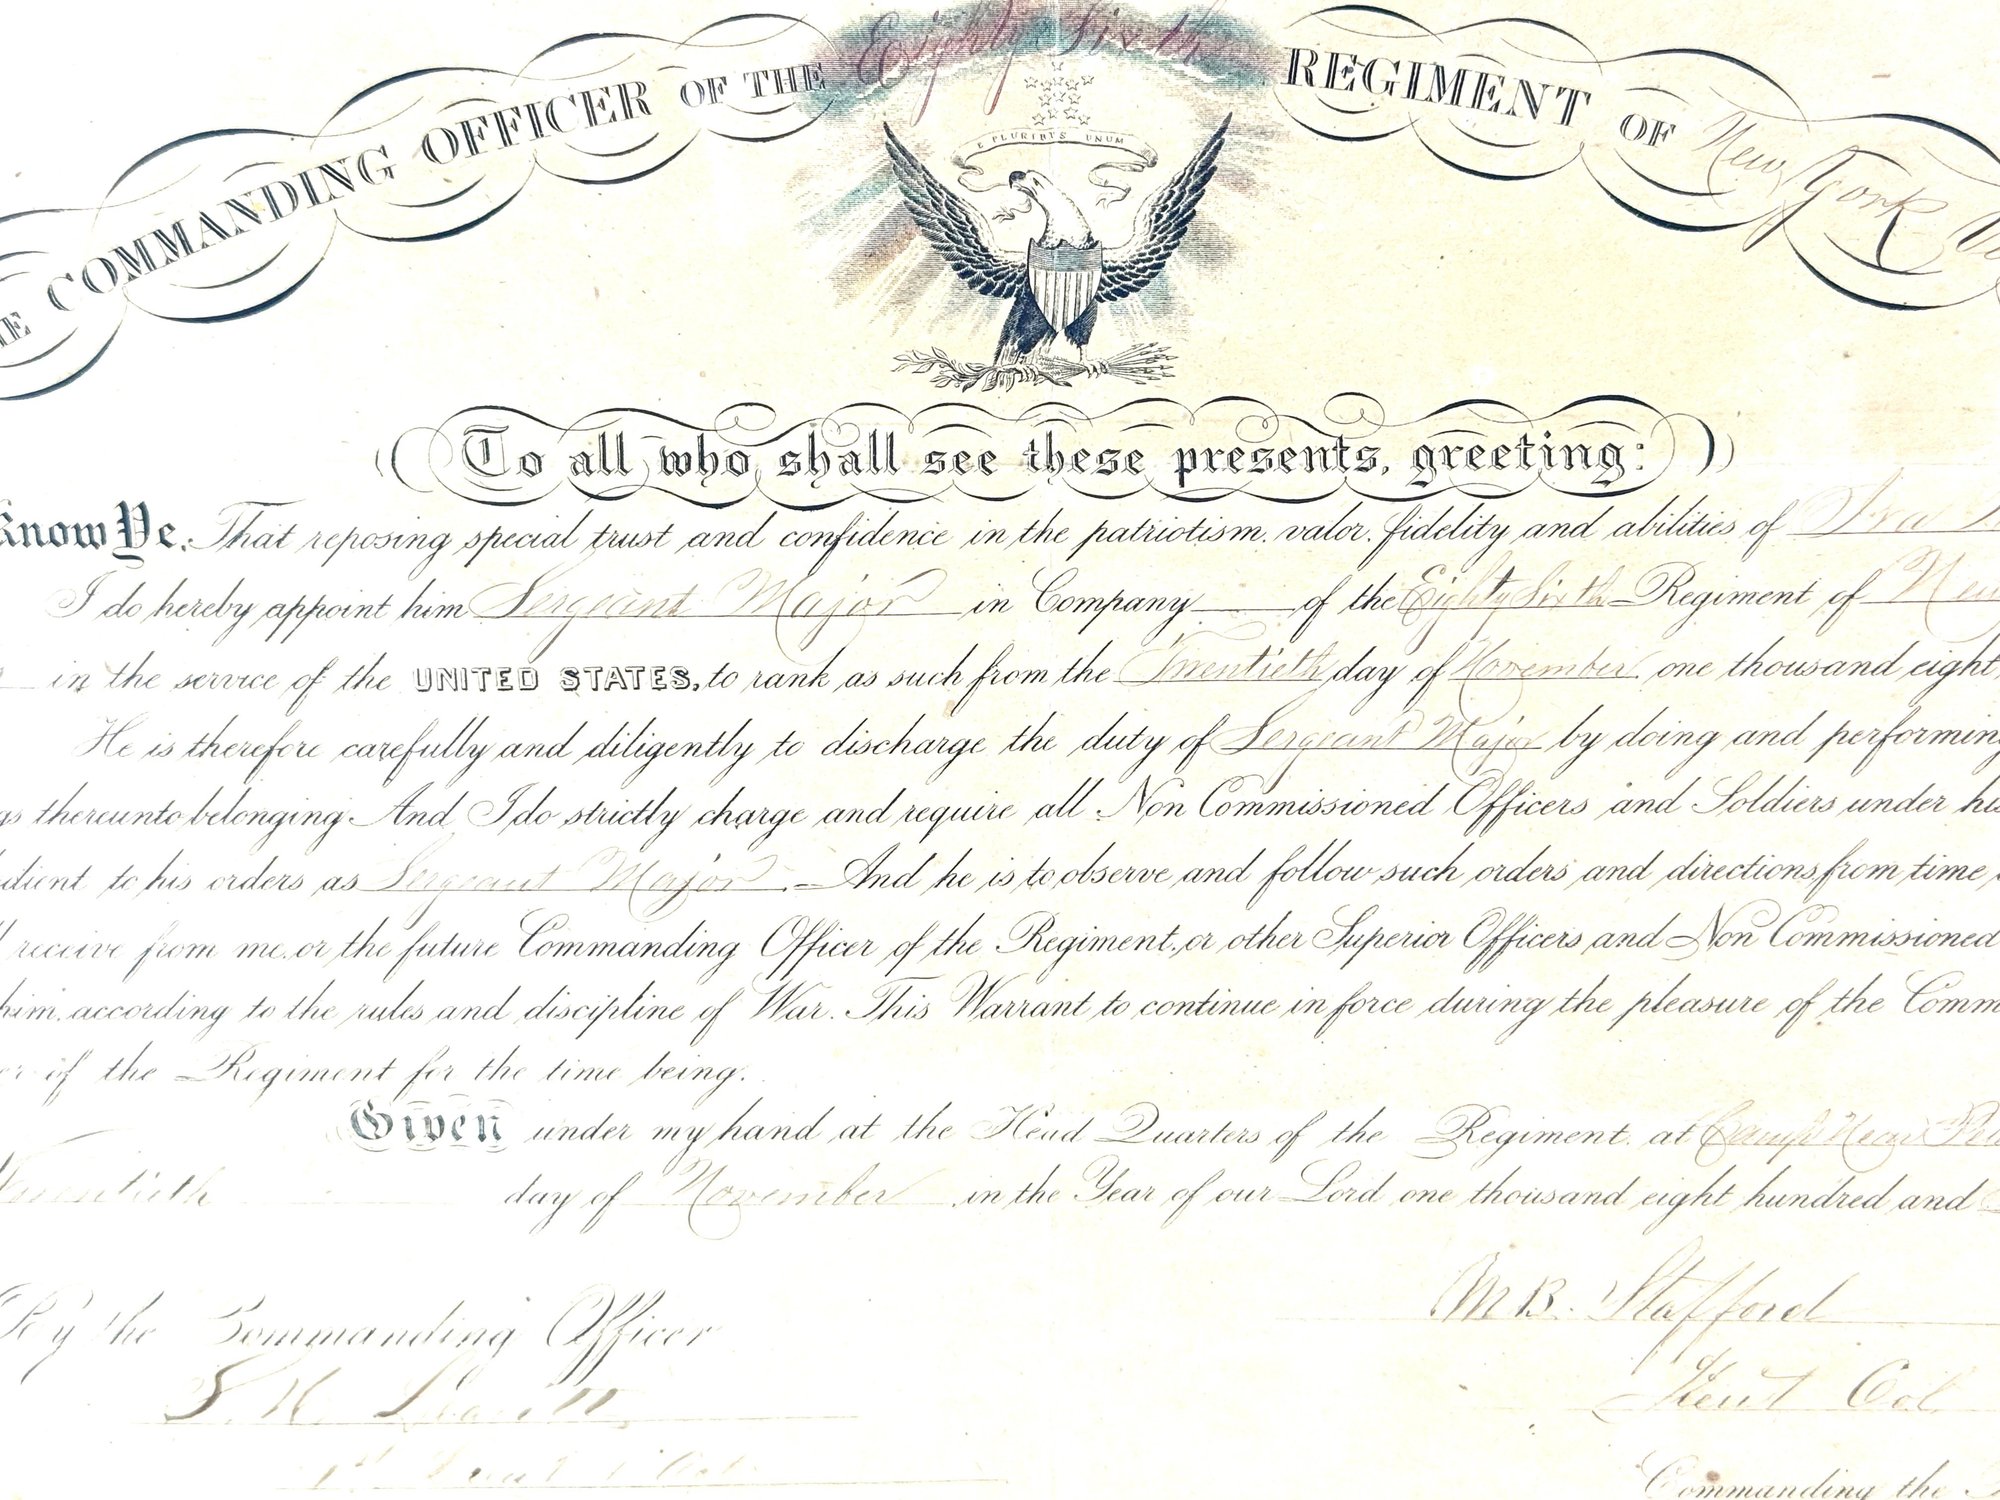 COMMANDING OFFICER OF THE Eighty Sixth REGIMENT OF New York
E PLURIBUS UNUM
To all who shall see these presents, greeting:
Know Ye, That reposing special trust and confidence in the patriotism, valor, fidelity and abilities of
I do hereby appoint him Sergeant Major in Company of the Eighty Sixth Regiment of New
in the service of the UNITED STATES, to rank as such from the Twentieth day of November one thousand eight
He is therefore carefully and diligently to discharge the duty of Sergeant Major by doing and performing
gs thereunto belonging. And I do strictly charge and require all Non Commissioned Officers and Soldiers under his
dient to his orders as Sergeant Major. And he is to observe and follow such orders and directions, from time
receive from me, or the future Commanding Officer of the Regiment, or other Superior Officers and Non Commissioned
him, according to the rules and discipline of War. This Warrant to continue in force during the pleasure of the Comm
of the Regiment for the time being.
Given under my hand at the Head Quarters of the Regiment, at Camp Near
Twentieth day of November in the Year of our Lord one thousand eight hundred and
By the Commanding Officer
M B. Stafford
Lieut Col
Commanding the